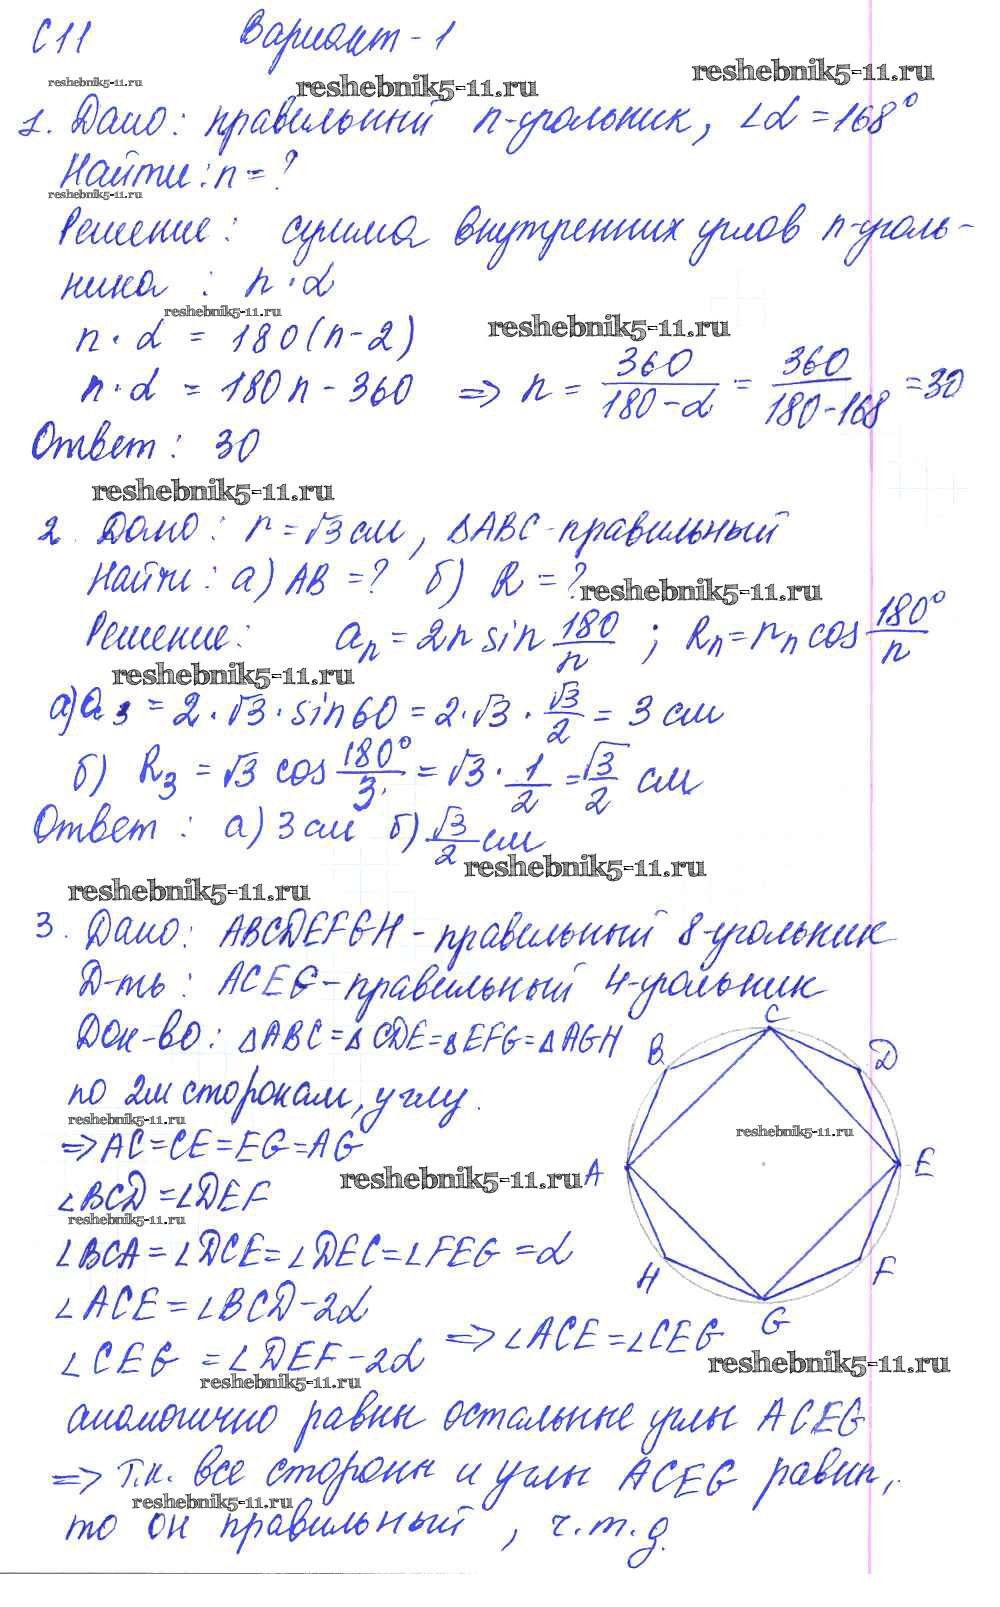 С11 Вариант-1
reshebnik5-11.ru reshebnik5-11.ru reshebnik5-11.ru
1. Дано: правильный n-угольник, ∠α = 168°
Найти: n = ?
reshebnik5-11.ru
Решение: сумма внутренних углов n-уголь-
ника : n · α
reshebnik5-11.ru reshebnik5-11.ru
n · α = 180(n-2)
n · α = 180n - 360 => n = 360/(180-α) = 360/(180-168) = 30
Ответ: 30
reshebnik5-11.ru
2. Дано: r = √3 см, ΔABC-правильный
Найти: а) AB = ? б) R = ?
reshebnik5-11.ru
Решение: aₙ = 2r sin 180/n ; Rₙ = rₙ cos 180°/n
reshebnik5-11.ru
а) a₃ = 2 · √3 · sin60 = 2 · √3 · √3/2 = 3 см
б) R₃ = √3 cos 180°/3 = √3 · 1/2 = √3/2 см
Ответ: а) 3 см б) √3/2 см
reshebnik5-11.ru
reshebnik5-11.ru
3. Дано: ABCDEFGH - правильный 8-угольник
Д-ть: ACEG - правильный 4-угольник
Док-во: ΔABC = ΔCDE = ΔEFG = ΔAGH
по 2м сторонам, углу.
reshebnik5-11.ru
=> AC = CE = EG = AG
reshebnik5-11.ru
∠BCD = ∠DEF
reshebnik5-11.ru
∠BCA = ∠DCE = ∠DEC = ∠FEG = α
∠ACE = ∠BCD - 2α
∠CEG = ∠DEF - 2α => ∠ACE = ∠CEG
reshebnik5-11.ru reshebnik5-11.ru
аналогично равны остальные углы ACEG
=> т.к. все стороны и углы ACEG равны,
reshebnik5-11.ru
то он правильный, ч.т.д.
C
B
D
reshebnik5-11.ru
A
E
H
F
G